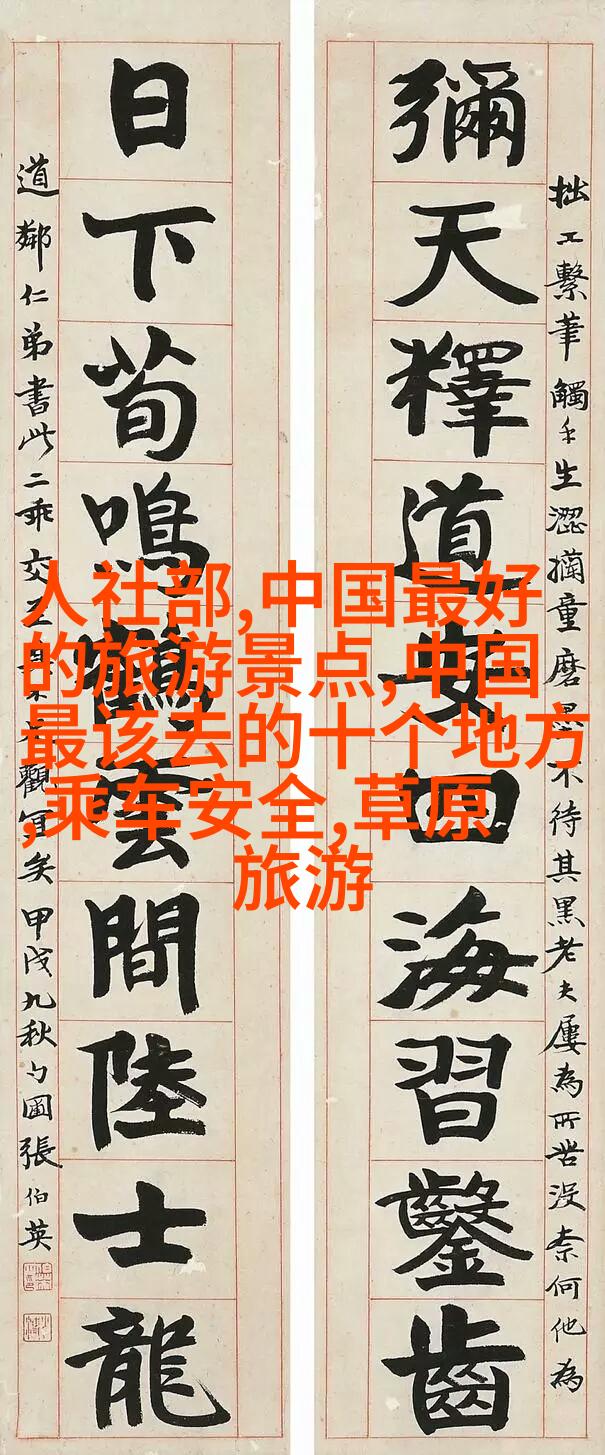 拙工繫筆觸手生澀童磨墨不待其黑老夫屢為所苦沒奈何他為
彌天釋道安四海習鑿齒
日下荀鳴鶴雲間陸士龍
道鄰仁弟書此二乖交觀宜矣甲戌九秋勺圃張伯英
人社部,中国最好
的旅游景点,中国
最该去的十个地方
,乘车安全,草原
旅游